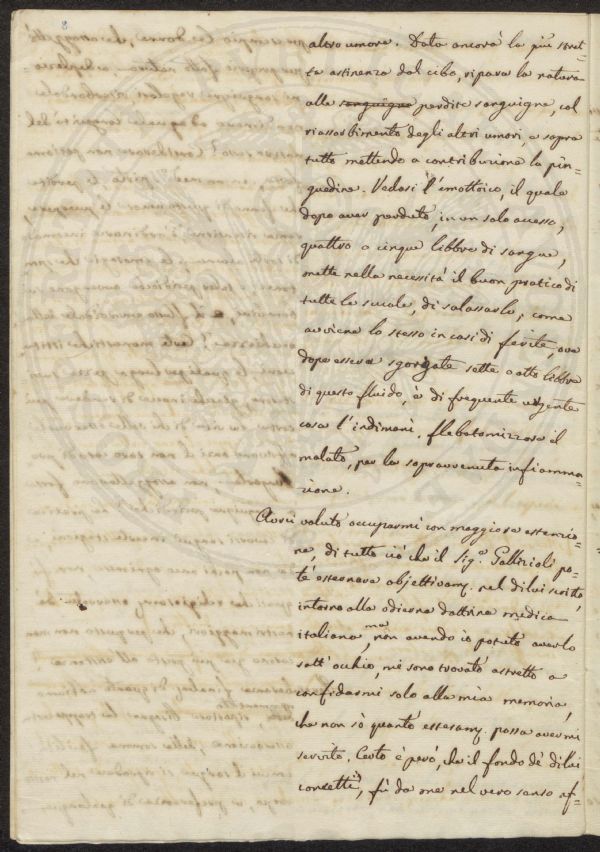 8
altro umore. Data ancorà la più stret-
ta astinenza dal cibo, ripara la natura
alle sanguigne perdite sanguigne, col
riassorbimento degli altri umori, e sopra
tutto mettendo a contribuzione la pin-
guedine. Vedasi l'emottoico, il quale
dopo aver perduto, in un solo accesso,
quattro o cinque libbre di sangue,
mette nella necessità il buon pratico di
tutte le scuole, di salassarlo; come
avviene lo stesso in casi di ferite, ove
dopo essere sgorgate sette o otto libbre
di questo fluido, è di frequente urgente
cosa l'indimani, flebotomizzare il
malato, per la sopravvenuta infiamma-
zione.
Avrei voluto occuparmi con maggiore estenzio-
ne, di tutto ciò che il Sigr. Pallizioli po-
té osservare objettivamg. nel di lui scritto,
intorno alla odierna dottrina medica
italiana, ma non avendo io potuto averlo
sott'occhio, mi sono trovato astretto a
confidarmi solo alla mia memoria,
che non sò quanto estesamg. possa avermi
servito. Certo è però, che il fondo de' di lui
concetti, fù da me nel vero senso af-